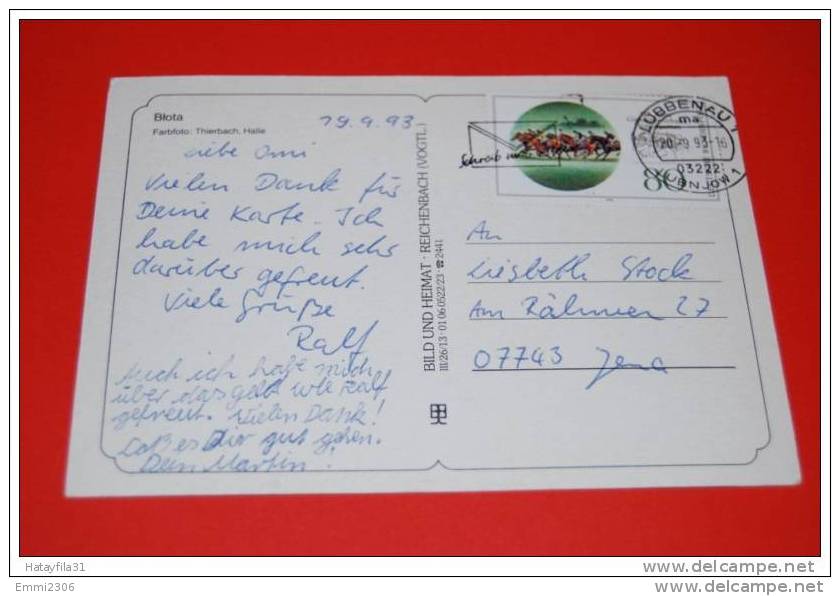 Błota
Farbfoto: Thierbach, Halle
19.9.93
Liebe Omi
Vielen Dank für
Deine Karte. Ich
habe mich sehr
darüber gefreut.
Viele Grüße
Ralf
Auch ich habe mich
über das Geld wie Ralf
gefreut. Vielen Dank!
Laß es Dir gut gehen.
Dein Martin!
BILD UND HEIMAT · REICHENBACH (VOGTL.)
III/26/13 · 01 06 0522/23 · ☎ 2441
Schreib mal
LÜBBENAU 1
ma
20.-9.93-16
03222
LUBNJOW 1
80
An
Liesbeth Stock
Am Rähmen 27
07743 Jena
Hatayfila31
www.delcampe.net
Emmi2306
www.delcampe.net